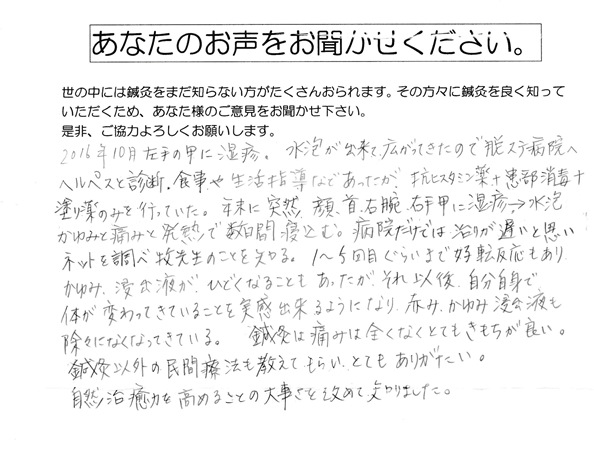 あなたのお声をお聞かせください。
世の中には鍼灸をまだ知らない方がたくさんおられます。その方々に鍼灸を良く知って
いただくため、あなた様のご意見をお聞かせ下さい。
是非、ご協力よろしくお願いします。
2016年10月左手の甲に湿疹。水泡が出来て、広がってきたので脱ステ病院へ
ヘルペスと診断、食事や生活指導などあったが、抗ヒスタミン薬+患部消毒+
塗り薬のみを行っていた。年末に突然、顔、首、右腕、右手甲に湿疹→水泡
かゆみと痛みと発熱で数日間寝込む。病院だけでは治りが遅いと思い
ネットを調べ牧先生のことを知る。1〜5回目ぐらいまで好転反応もあり
かゆみ、浸出液が、ひどくなることもあったが、それ以後、自分自身で
体が変わってきていることを実感出来るようになり、赤み、かゆみ、浸出液も
除々になくなってきている。鍼灸は痛みは全くなくとてもきもちが良い。
鍼灸以外の民間療法も教えてもらい、とてもありがたい。
自然治癒力を高めることの大事さを改めて知りました。